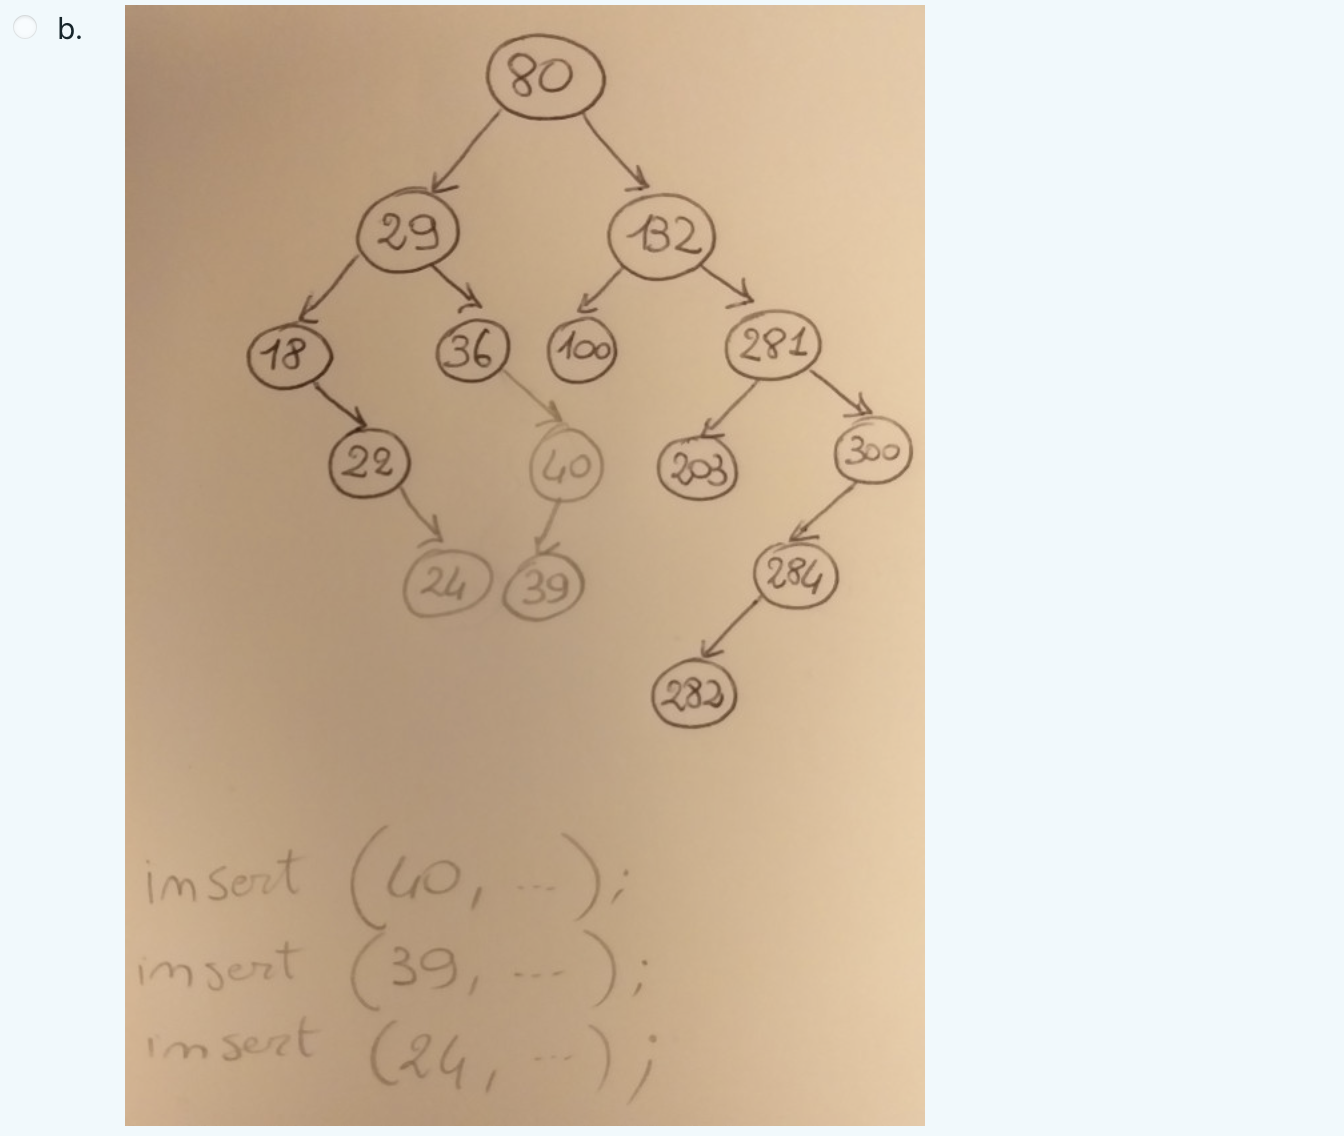 b.
80
29 132
18 36 100 281
22 40 203 300
24 39 284
282
insert (40, ...);
insert (39, ...);
insert (24, ...);